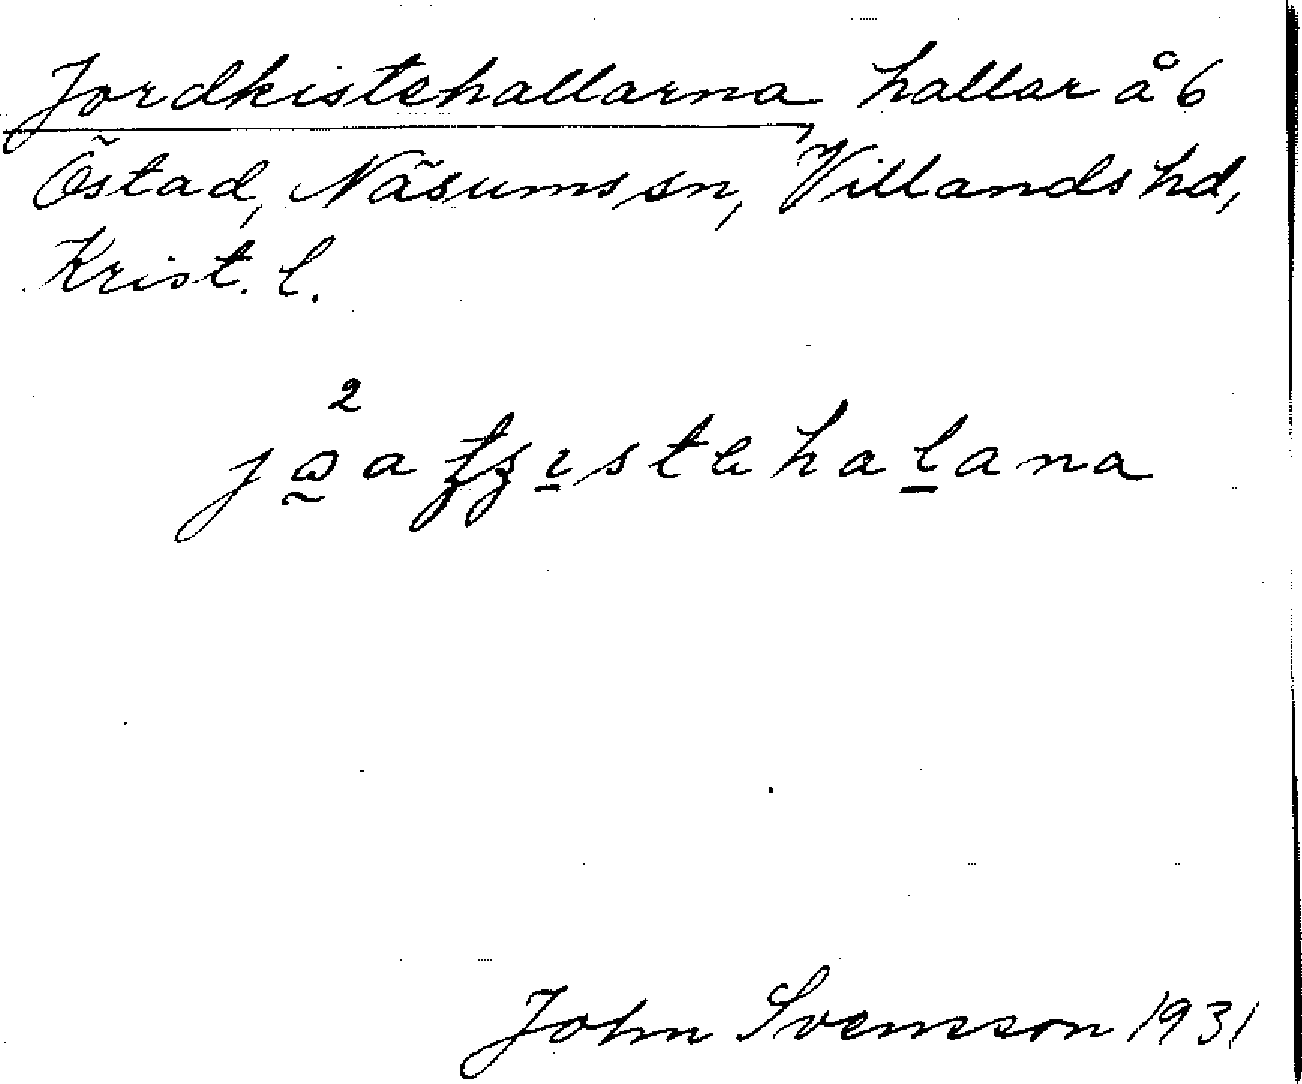 Jordkistehallarna hallar å 6
Östad, Näsums sn, Villands hd,
Krist. l.
2
John Svensson 1931